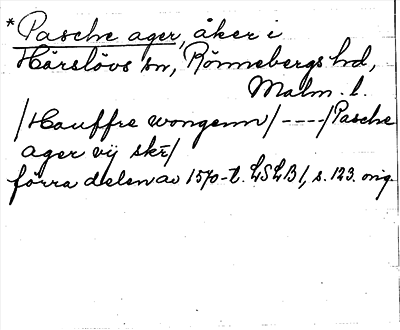 *Pasche ager, åker i
Härslövs sn, Rönnebergs hd,
Malm. l.
/Hauffre wongenn/ ----/Pasche
ager vij skr/
förra delen av 1570-t. LSLB 1, s. 123. orig.